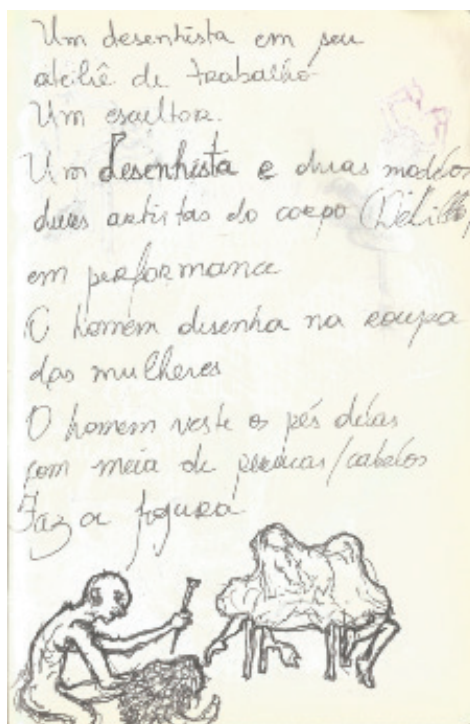 Um desenhista em seu
ateliê de trabalho
Um escultor.
Um desenhista e duas modelos
duas artistas do corpo (
em performance
O homem desenha na roupa
das mulheres
O homem veste os pés delas
com meia de perucas/cabelos
Faz a figura